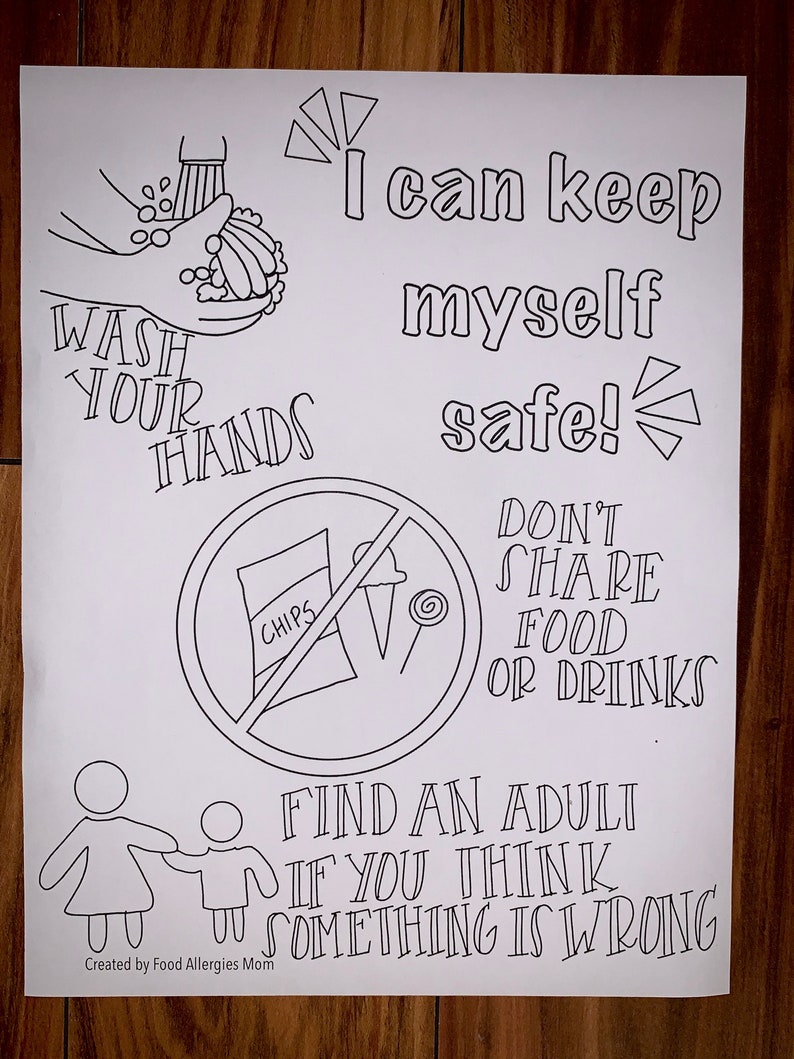 I can keep
myself
safe!
WASH
YOUR
HANDS
CHIPS
DON'T
SHARE
FOOD
OR DRINKS
FIND AN ADULT
IF YOU THINK
SOMETHING IS WRONG
Created by Food Allergies Mom